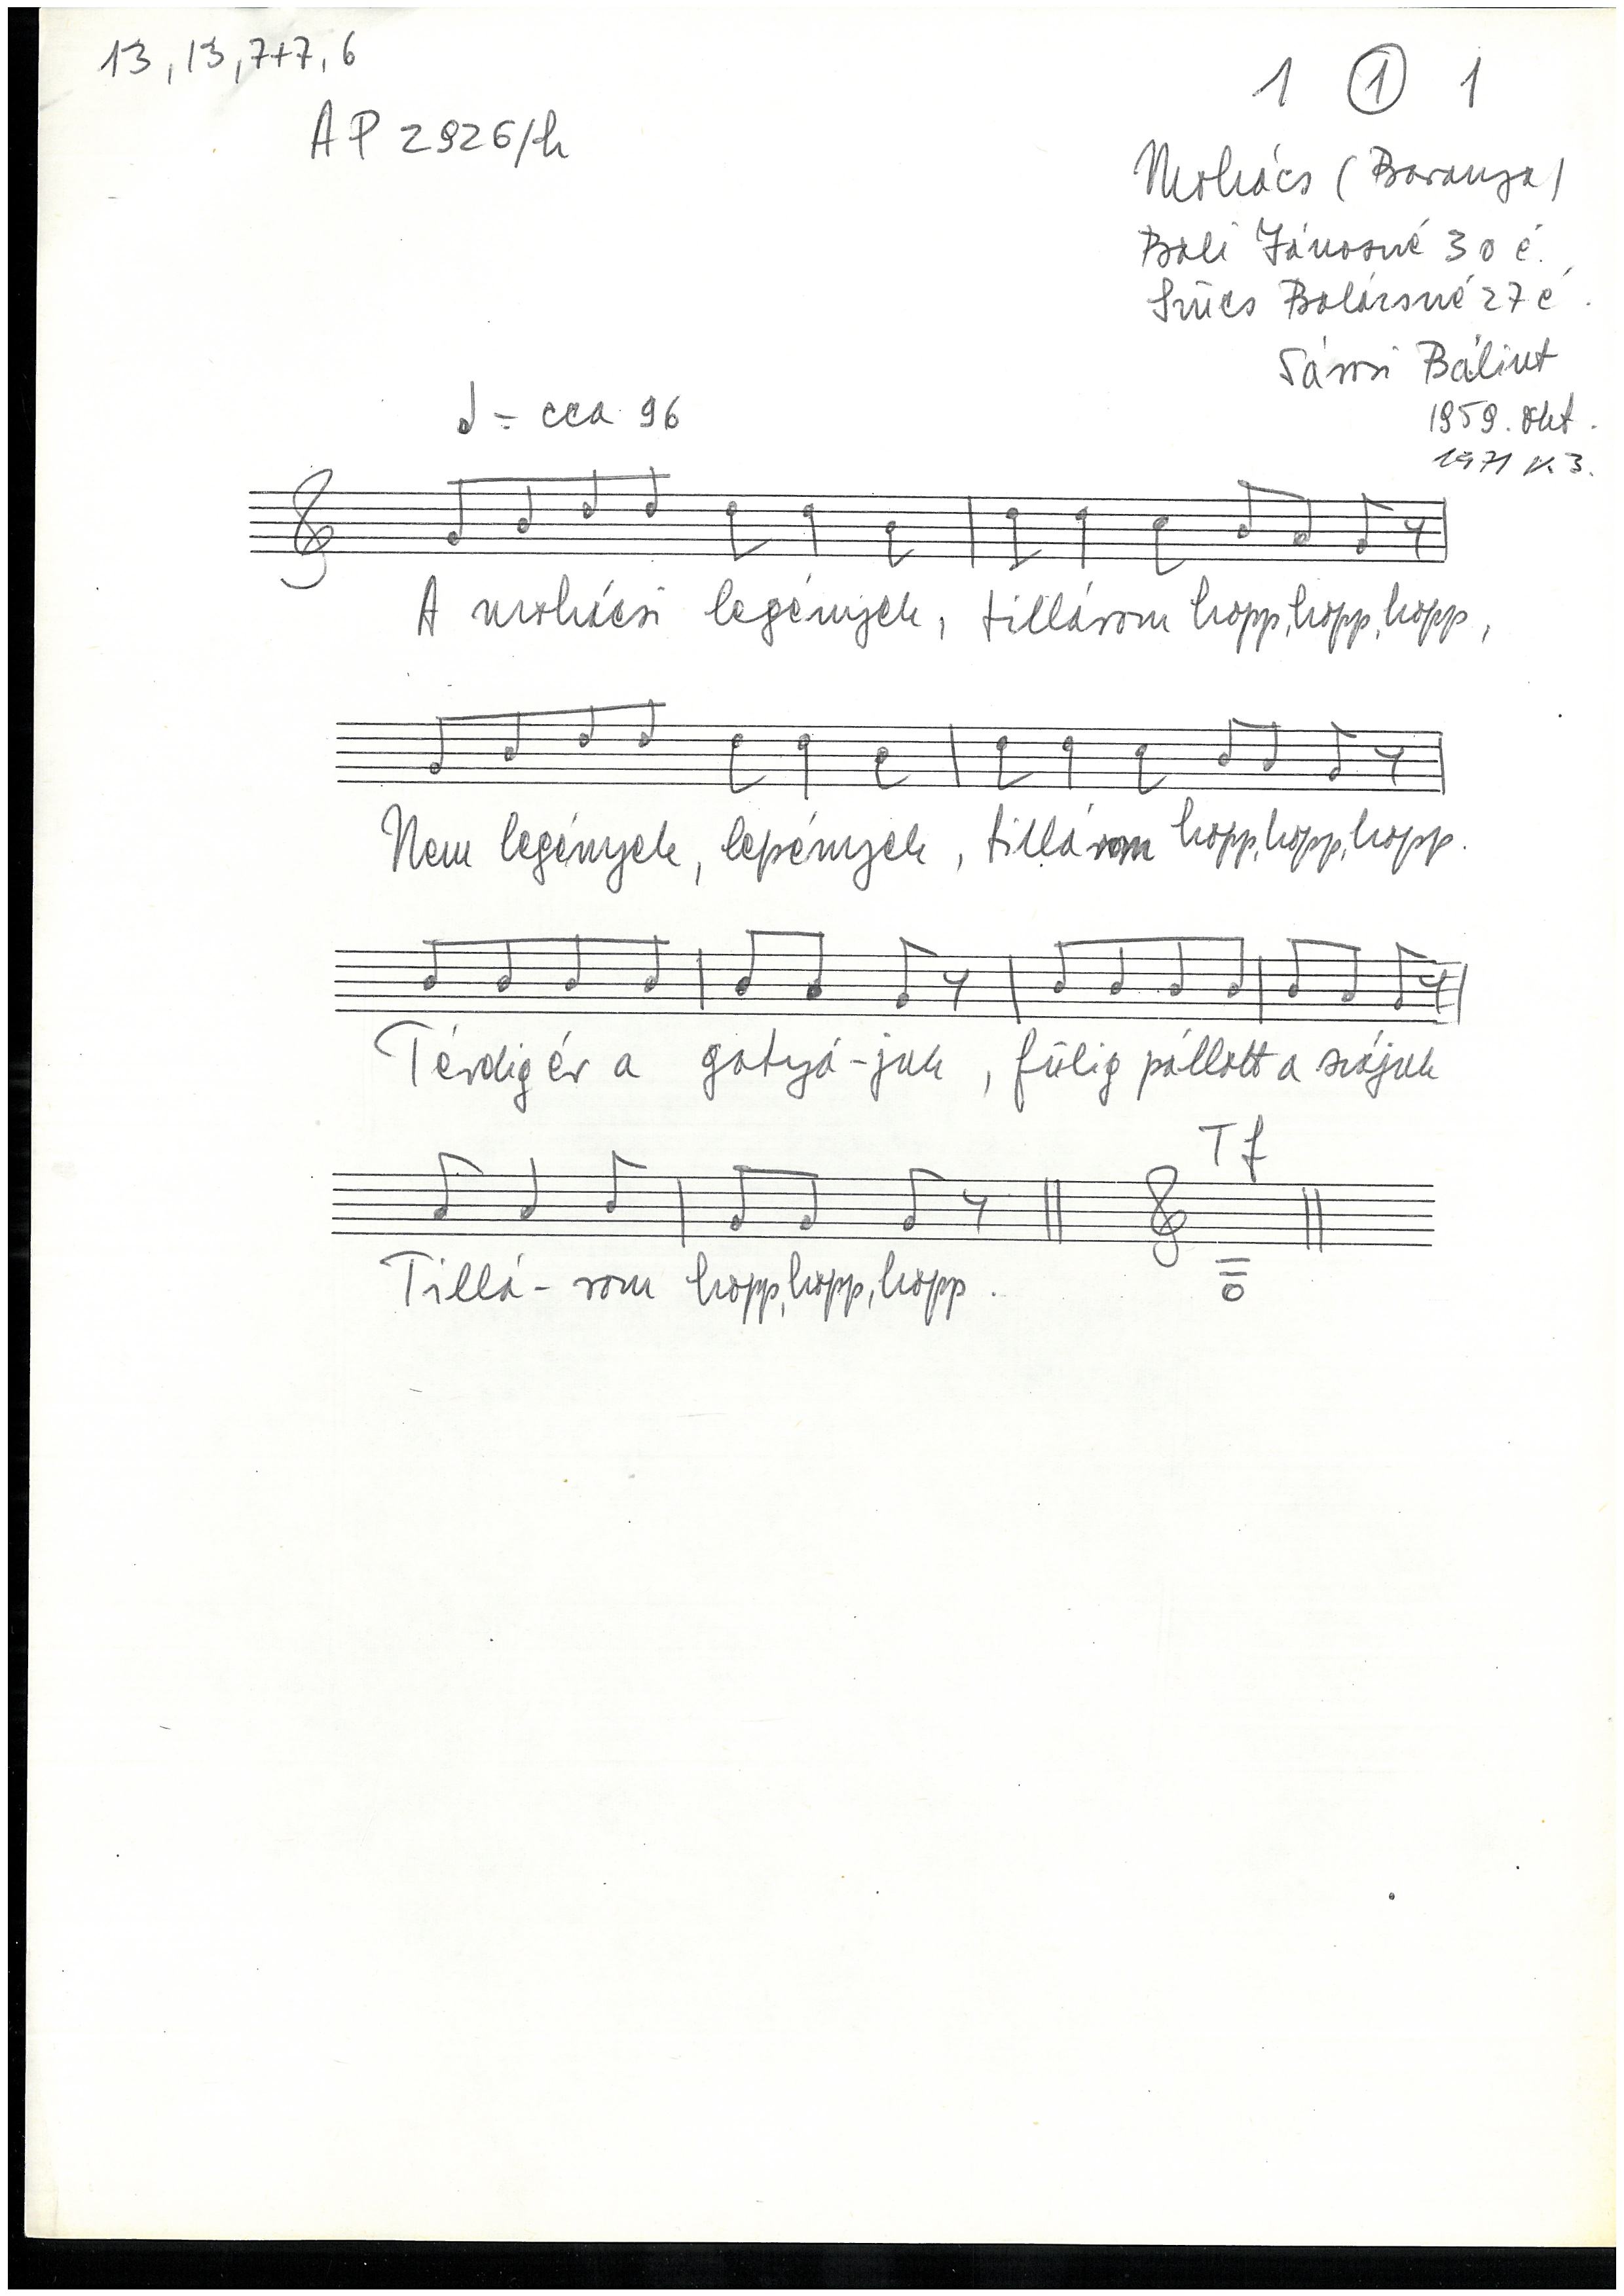 13, 13, 7+7, 6
1 1 1
AP 2926/h
Mohács (Baranya)
Bali Jánosné 30 é.
Szűcs Balázsné 27 é.
Sárosi Bálint
1959. okt.
= cca 96
1971 V. 3.
A mohácsi legények, tillárom hopp, hopp, hopp,
Nem legények, lepények, tillárom hopp, hopp, hopp.
Térdig ér a gatyá-juk, fülig pállott a szájuk
Tf
Tillá-rom hopp, hopp, hopp.